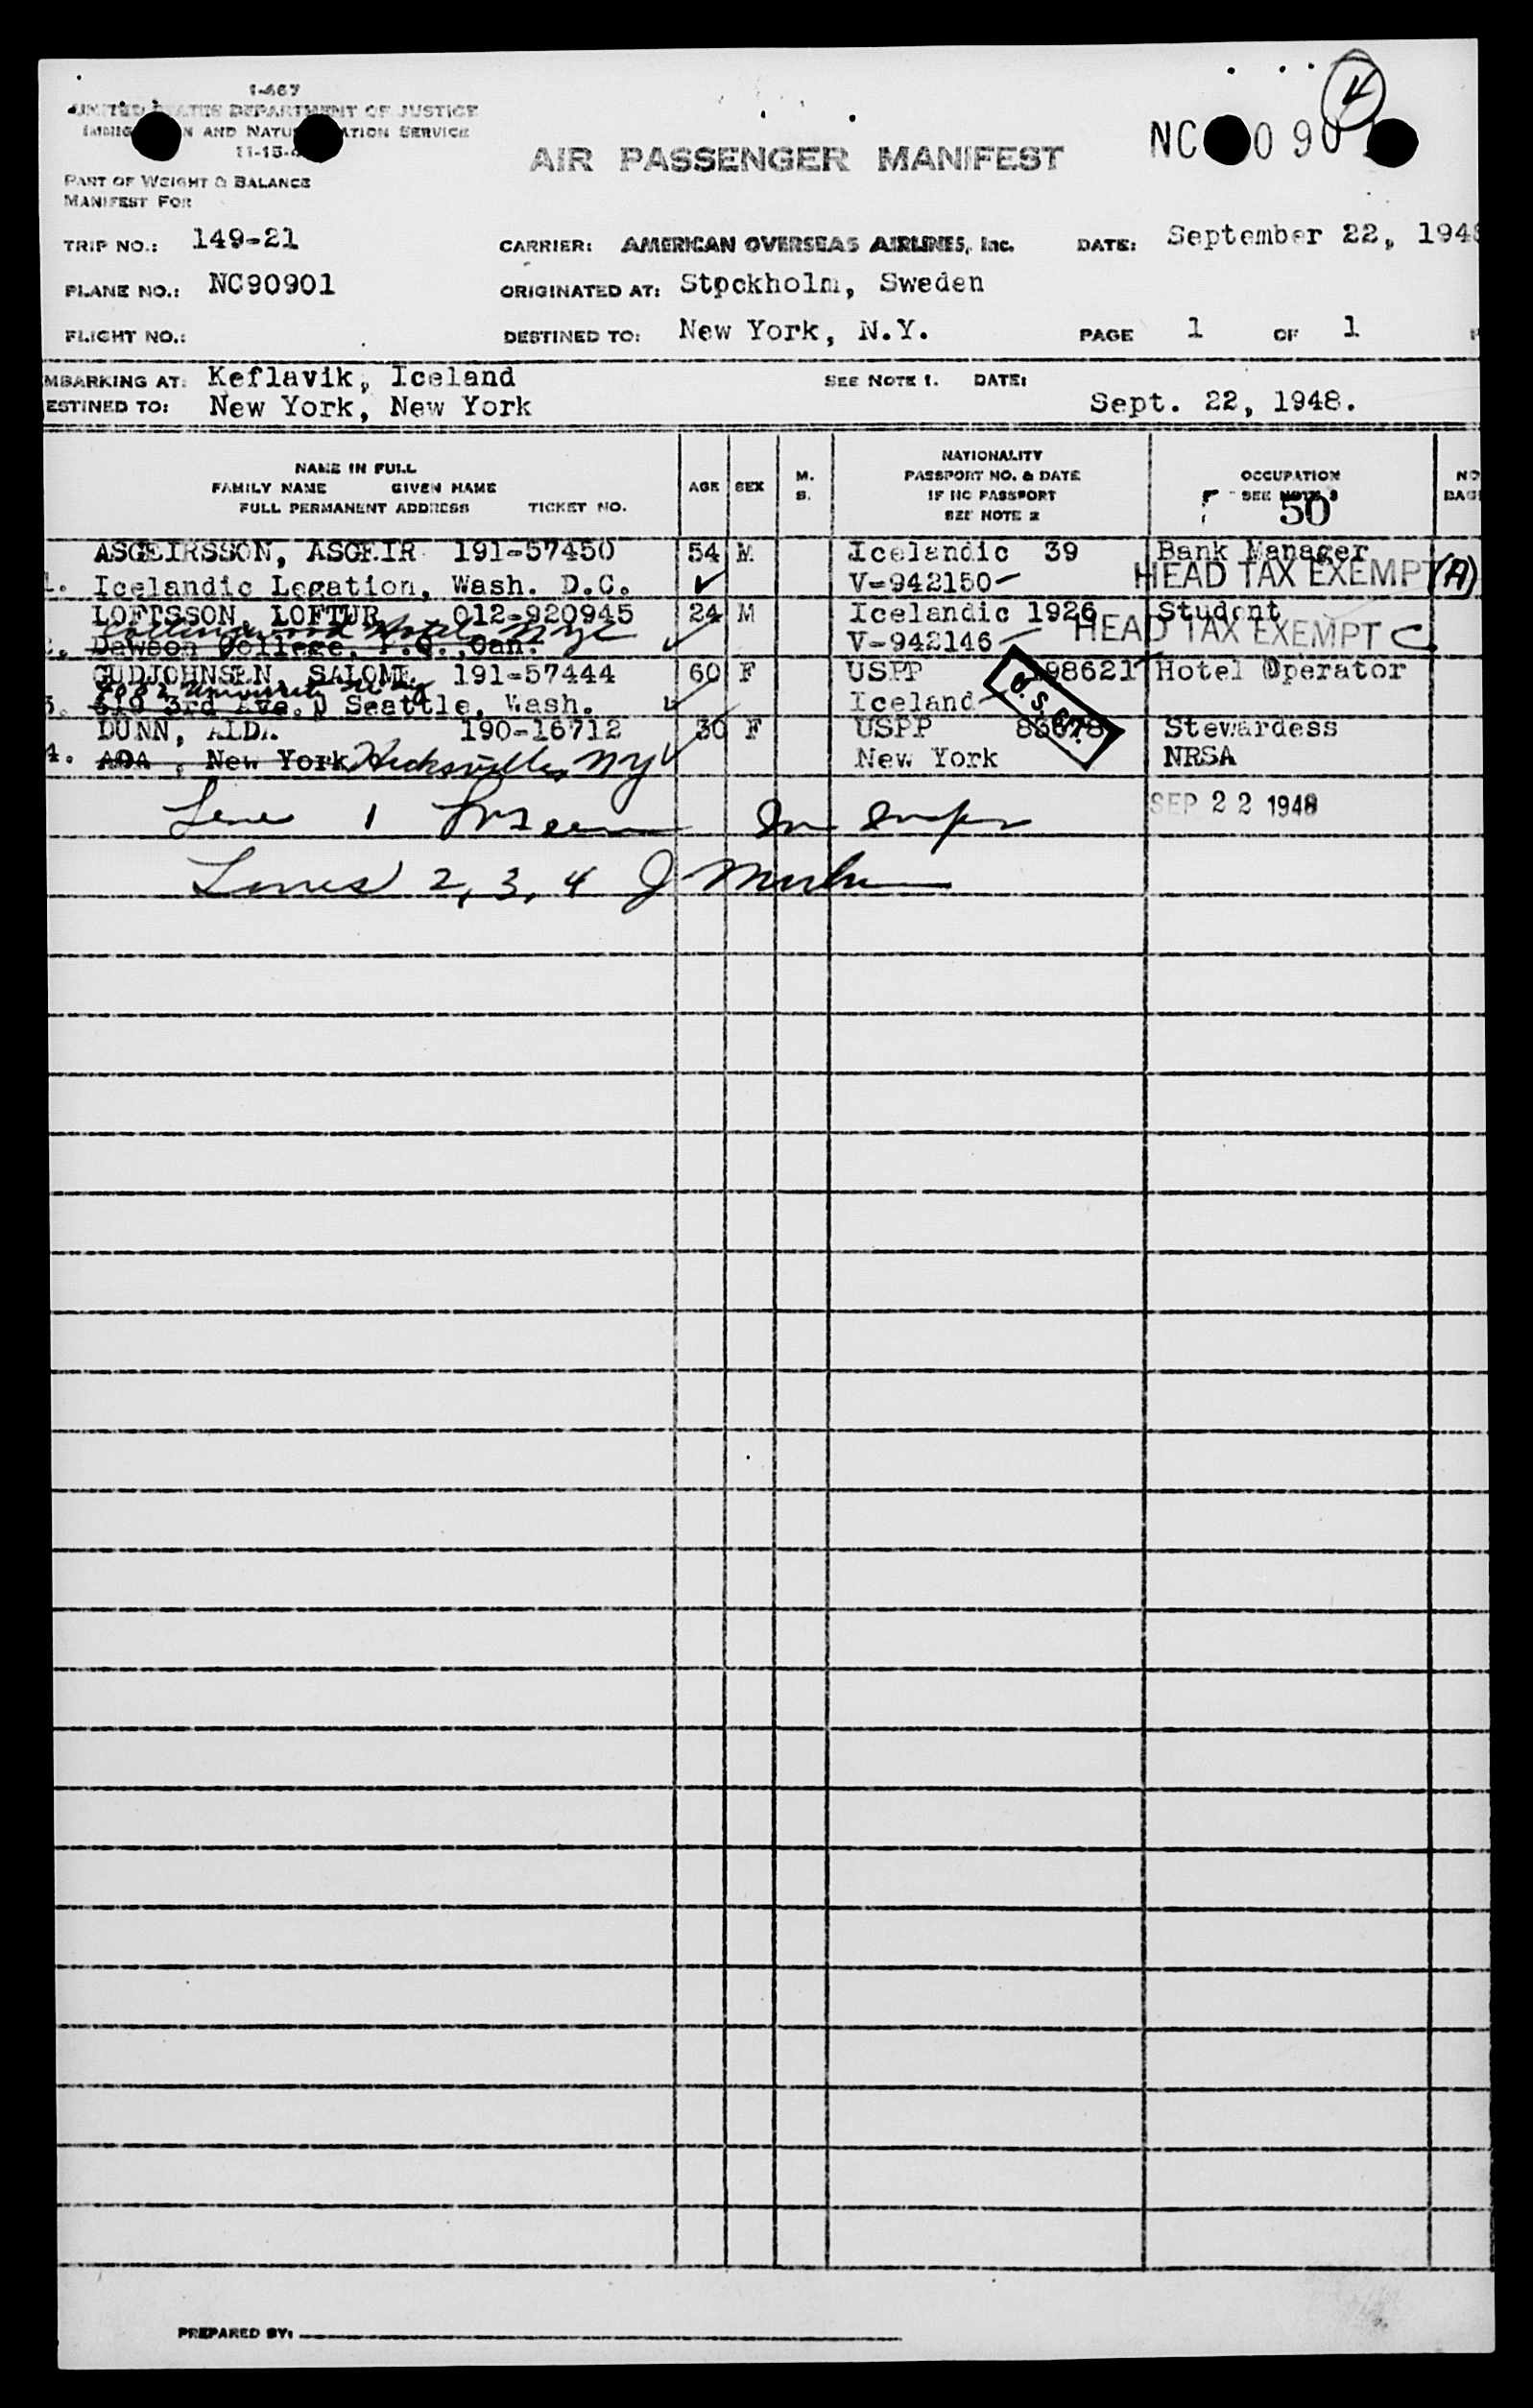 I-467
UNITED STATES DEPARTMENT OF JUSTICE
AND NATU ATION SERVICE
11-15-4
AIR PASSENGER MANIFEST
NC 0 90
PART OF WEIGHT & BALANCE
MANIFEST FOR
TRIP NO.: 149-21 CARRIER: AMERICAN OVERSEAS AIRLINES, Inc. DATE: September 22, 1948
PLANE NO.: NC90901 ORIGINATED AT: Stockholm, Sweden
FLIGHT NO.: DESTINED TO: New York, N.Y. PAGE 1 OF 1
MBARKING AT: Keflavik, Iceland SEE NOTE 1. DATE:
ESTINED TO: New York, New York Sept. 22, 1948.
NAME IN FULL
FAMILY NAME GIVEN NAME
FULL PERMANENT ADDRESS TICKET NO.
AGE SEX M. S.
NATIONALITY
PASSPORT NO. & DATE
IF NO PASSPORT
SEE NOTE 2
OCCUPATION
SEE NOTE 3
50
NO
BAG
ASGEIRSSON, ASGEIR 191-57450 54 M Icelandic 39 Bank Manager
1. Icelandic Legation, Wash. D.C. V-942150 HEAD TAX EXEMPT (A)
LOFTSSON, LOFTUR 012-920945 24 M Icelandic 1926 Student
Collingwood Hotel, NYC
Dawson College, P.Q. Can. V-942146 HEAD TAX EXEMPT C
GUDJOHNSEN, SALOME 191-57444 60 F USPP 198621 Hotel Operator
University
3. 3rd Ave., Seattle, Wash. Iceland U.S.
DUNN, ALDA 190-16712 30 F USPP Stewardess
4. AOA, New York Hicksville, NY New York NRSA
Line 1 SEP 22 1948
Lines 2, 3, 4 J
PREPARED BY: